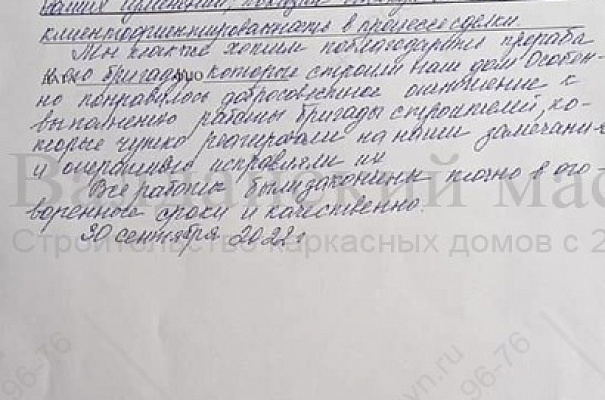 клиентоориентированность в процессе сделки.
Мы также хотим поблагодарить прораба
и его бригаду, которые строили нам дом. Особен-
но понравилось добросовестное отношение к
выполнению работы бригады строителей, ко-
торые чутко реагировали на наши замечания
и оперативно исправляли их
Все работы были закончены точно в ого-
воренные сроки и качественно.
30 сентября 2022 г
Валдайский мас
Строительство каркасных домов с 2
96-76
vn.ru
96-76